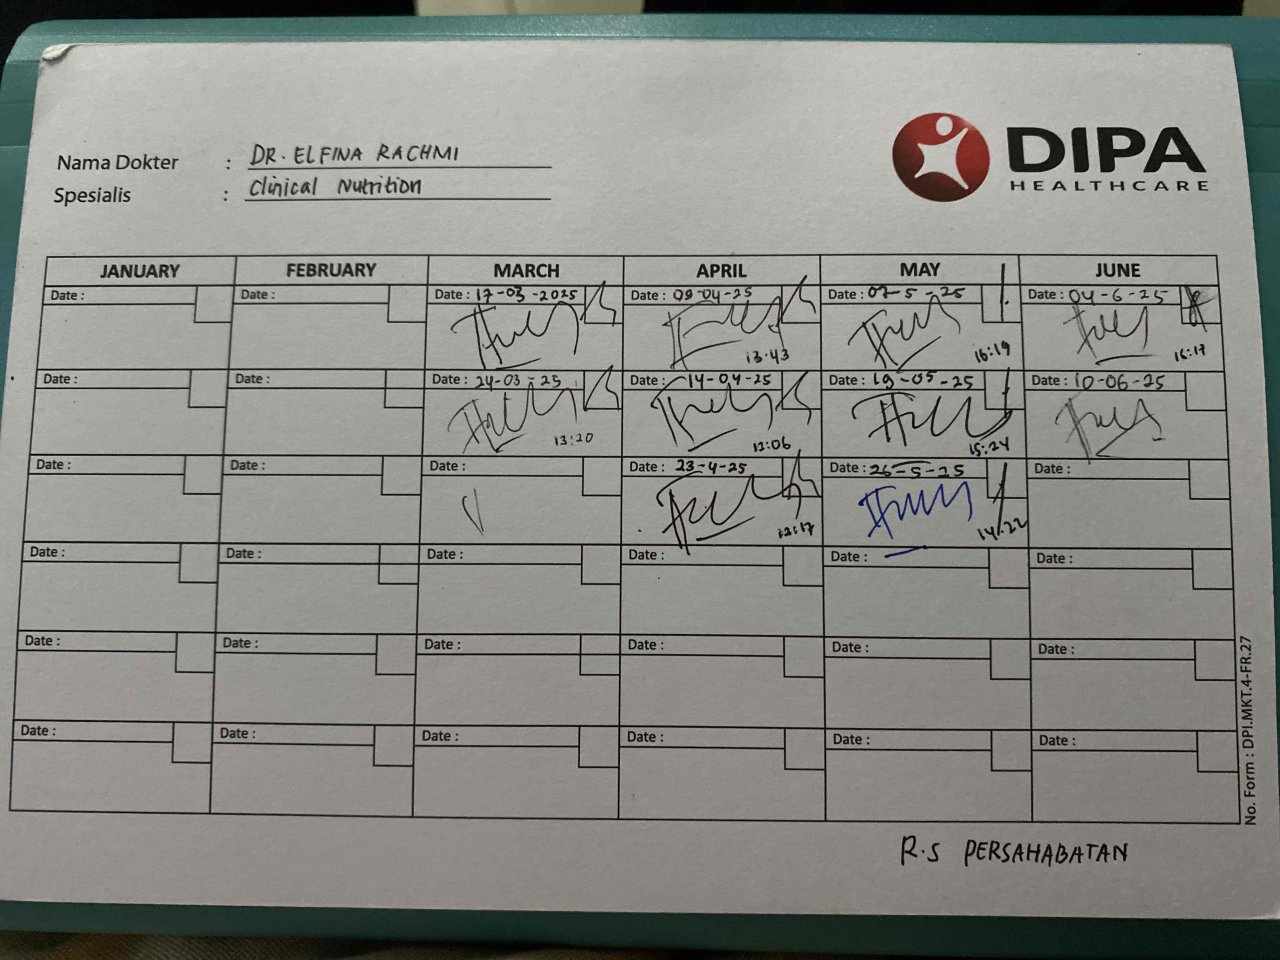 DIPA
HEALTHCARE
Nama Dokter : DR. ELFINA RACHMI
Spesialis : Clinical Nutrition
JANUARY FEBRUARY MARCH APRIL MAY JUNE
Date : Date : Date : 17-03-2025 Date : 09-04-25 Date : 07-5-25 Date : 04-6-25
13.43 16:19 16:17
Date : Date : Date : 24-03-25 Date : 14-04-25 Date : 19-05-25 Date : 10-06-25
13:20 12:06 15:24
Date : Date : Date : Date : 23-4-25 Date : 26-5-25 Date :
12:17 14.22
Date : Date : Date : Date : Date : Date :
Date : Date : Date : Date : Date : Date :
Date : Date : Date : Date : Date : Date :
No. Form : DPI.MKT.4-FR.27
R.S PERSAHABATAN